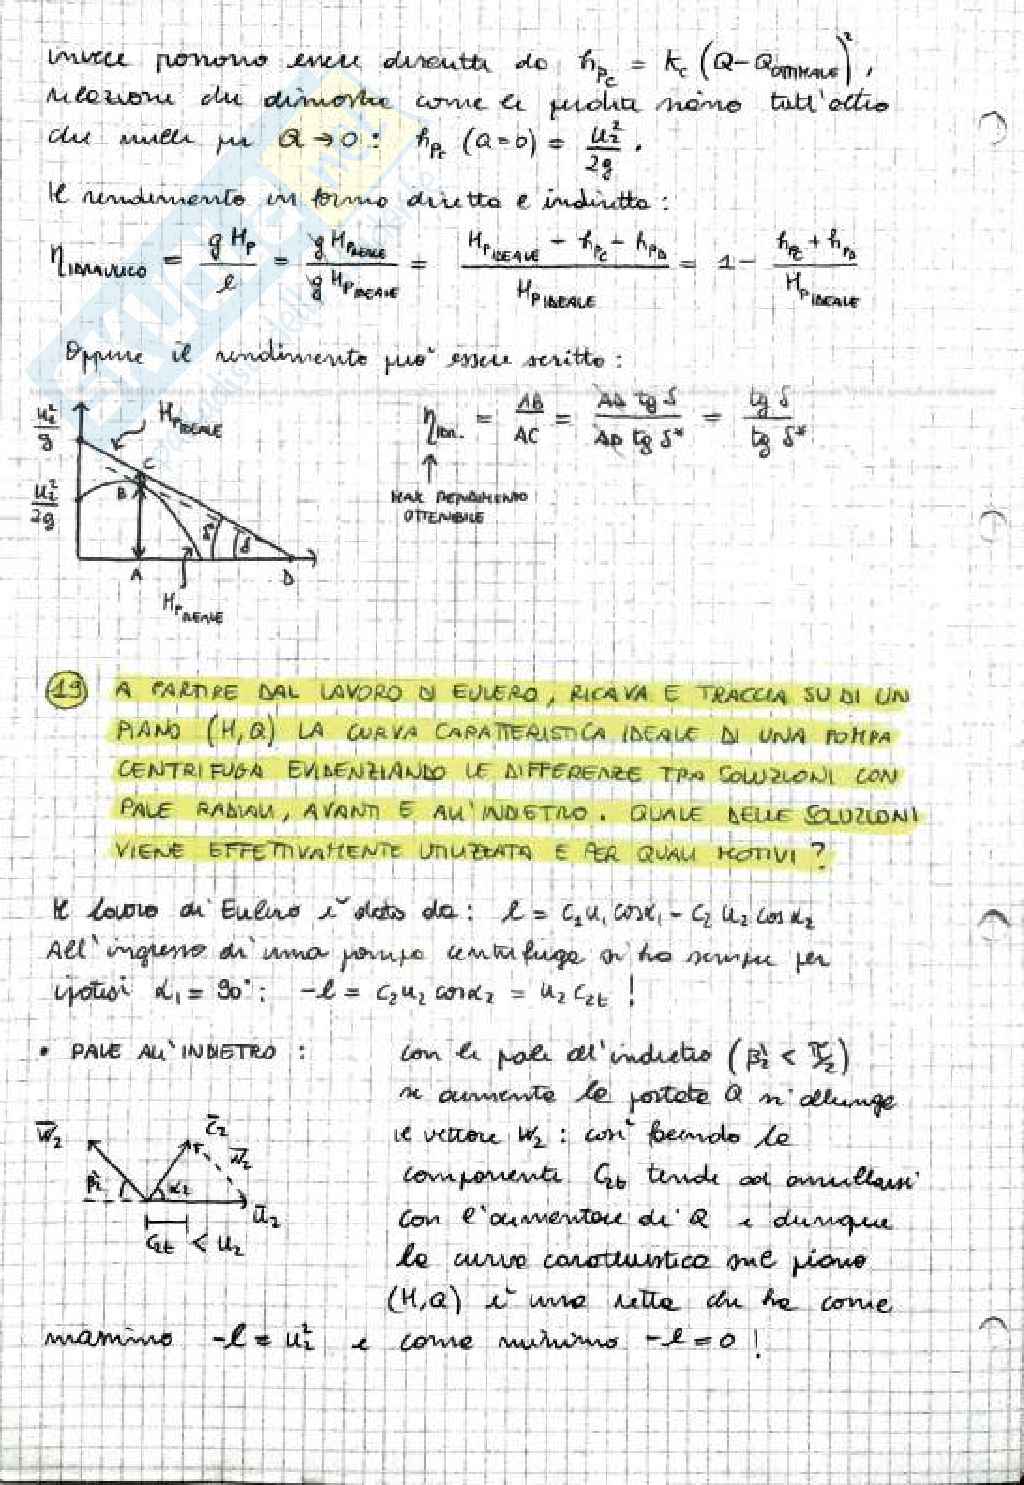 invece possono essere descritte da h_Pc = K_c (Q - Q_OTTIMALE)²,
relazione che dimostra come le perdite siano tutt'altro
che nulle per Q → 0 : h_Pc (Q=0) = u₂²/2g .
Il rendimento in forma diretta e indiretta :
η_IDRAULICO = g H_P / l = g H_P REALE / g H_P IDEALE = (H_P IDEALE - h_Pc - h_PD) / H_P IDEALE = 1 - (h_Pc + h_PD) / H_P IDEALE
Oppure il rendimento può essere scritto :
u₂²/g
H_P IDEALE
η_IDR. = AB/AC = AD tg δ / AD tg δ* = tg δ / tg δ*
C
B
u₂²/2g
MAX RENDIMENTO
OTTENIBILE
δ* δ
A D
19 A PARTIRE DAL LAVORO DI EULERO, RICAVA E TRACCIA SU DI UN
PIANO (H,Q) LA CURVA CARATTERISTICA IDEALE DI UNA POMPA
CENTRIFUGA EVIDENZIANDO LE DIFFERENZE TRA SOLUZIONI CON
PALE RADIALI, AVANTI E ALL'INDIETRO. QUALE DELLE SOLUZIONI
VIENE EFFETTIVAMENTE UTILIZZATA E PER QUALI MOTIVI ?
Il lavoro di Eulero è dato da : l = c₂u₁cosα₁ - c₂u₂cosα₂
All'ingresso di una pompa centrifuga si ha sempre per
ipotesi α₁ = 90° : -l = c₂u₂cosα₂ = u₂c₂t !
• PALE ALL'INDIETRO :
con le pale all'indietro (β₂ < π/2)
se aumenta la portata Q si allunga
il vettore w₂ : così facendo la
componente c₂t tende ad annullarsi
con l'aumentare di Q e dunque
la curva caratteristica sul piano
(H,Q) è una retta che ha come
w̄₂ c̄₂ w̄₂
β₂ α₂ ū₂
c₂t < u₂
massimo -l = u₂² e come minimo -l = 0 !